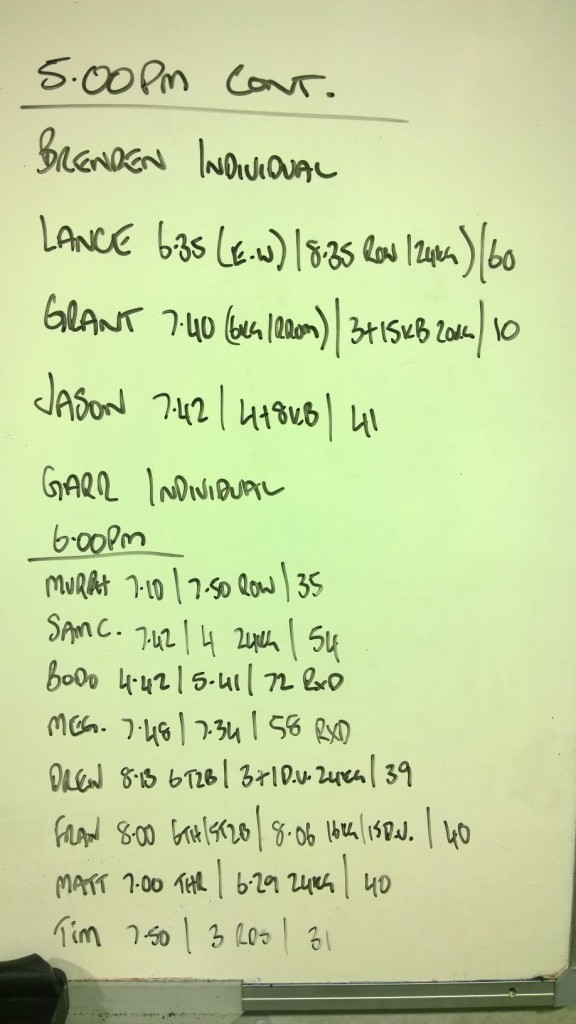 5.00PM CONT.
BRENDEN INDIVIDUAL
LANCE 6.35 (E.W) | 8.35 ROW | 24KG) | 60
GRANT 7.40 (6KG | RROM) | 3+15KB 20KG | 10
JASON 7.42 | 4+8KB | 41
GARR INDIVIDUAL
6.00PM
MURRAY 7.10 | 7.50 ROW | 35
SAM C. 7.42 | 4 24KG | 54
BODO 4.42 | 5.41 | 72 RXD
MEG. 7.48 | 7.34 | 58 RXD
DREW 8.13 6T2B | 3+1 D.U. 24KG | 39
FRAN 8.00 6TH | 5T2B | 8.06 16KG | 15D.U. | 40
MATT 7.00 THR | 6.29 24KG | 40
TIM 7.50 | 3 RDS | 31